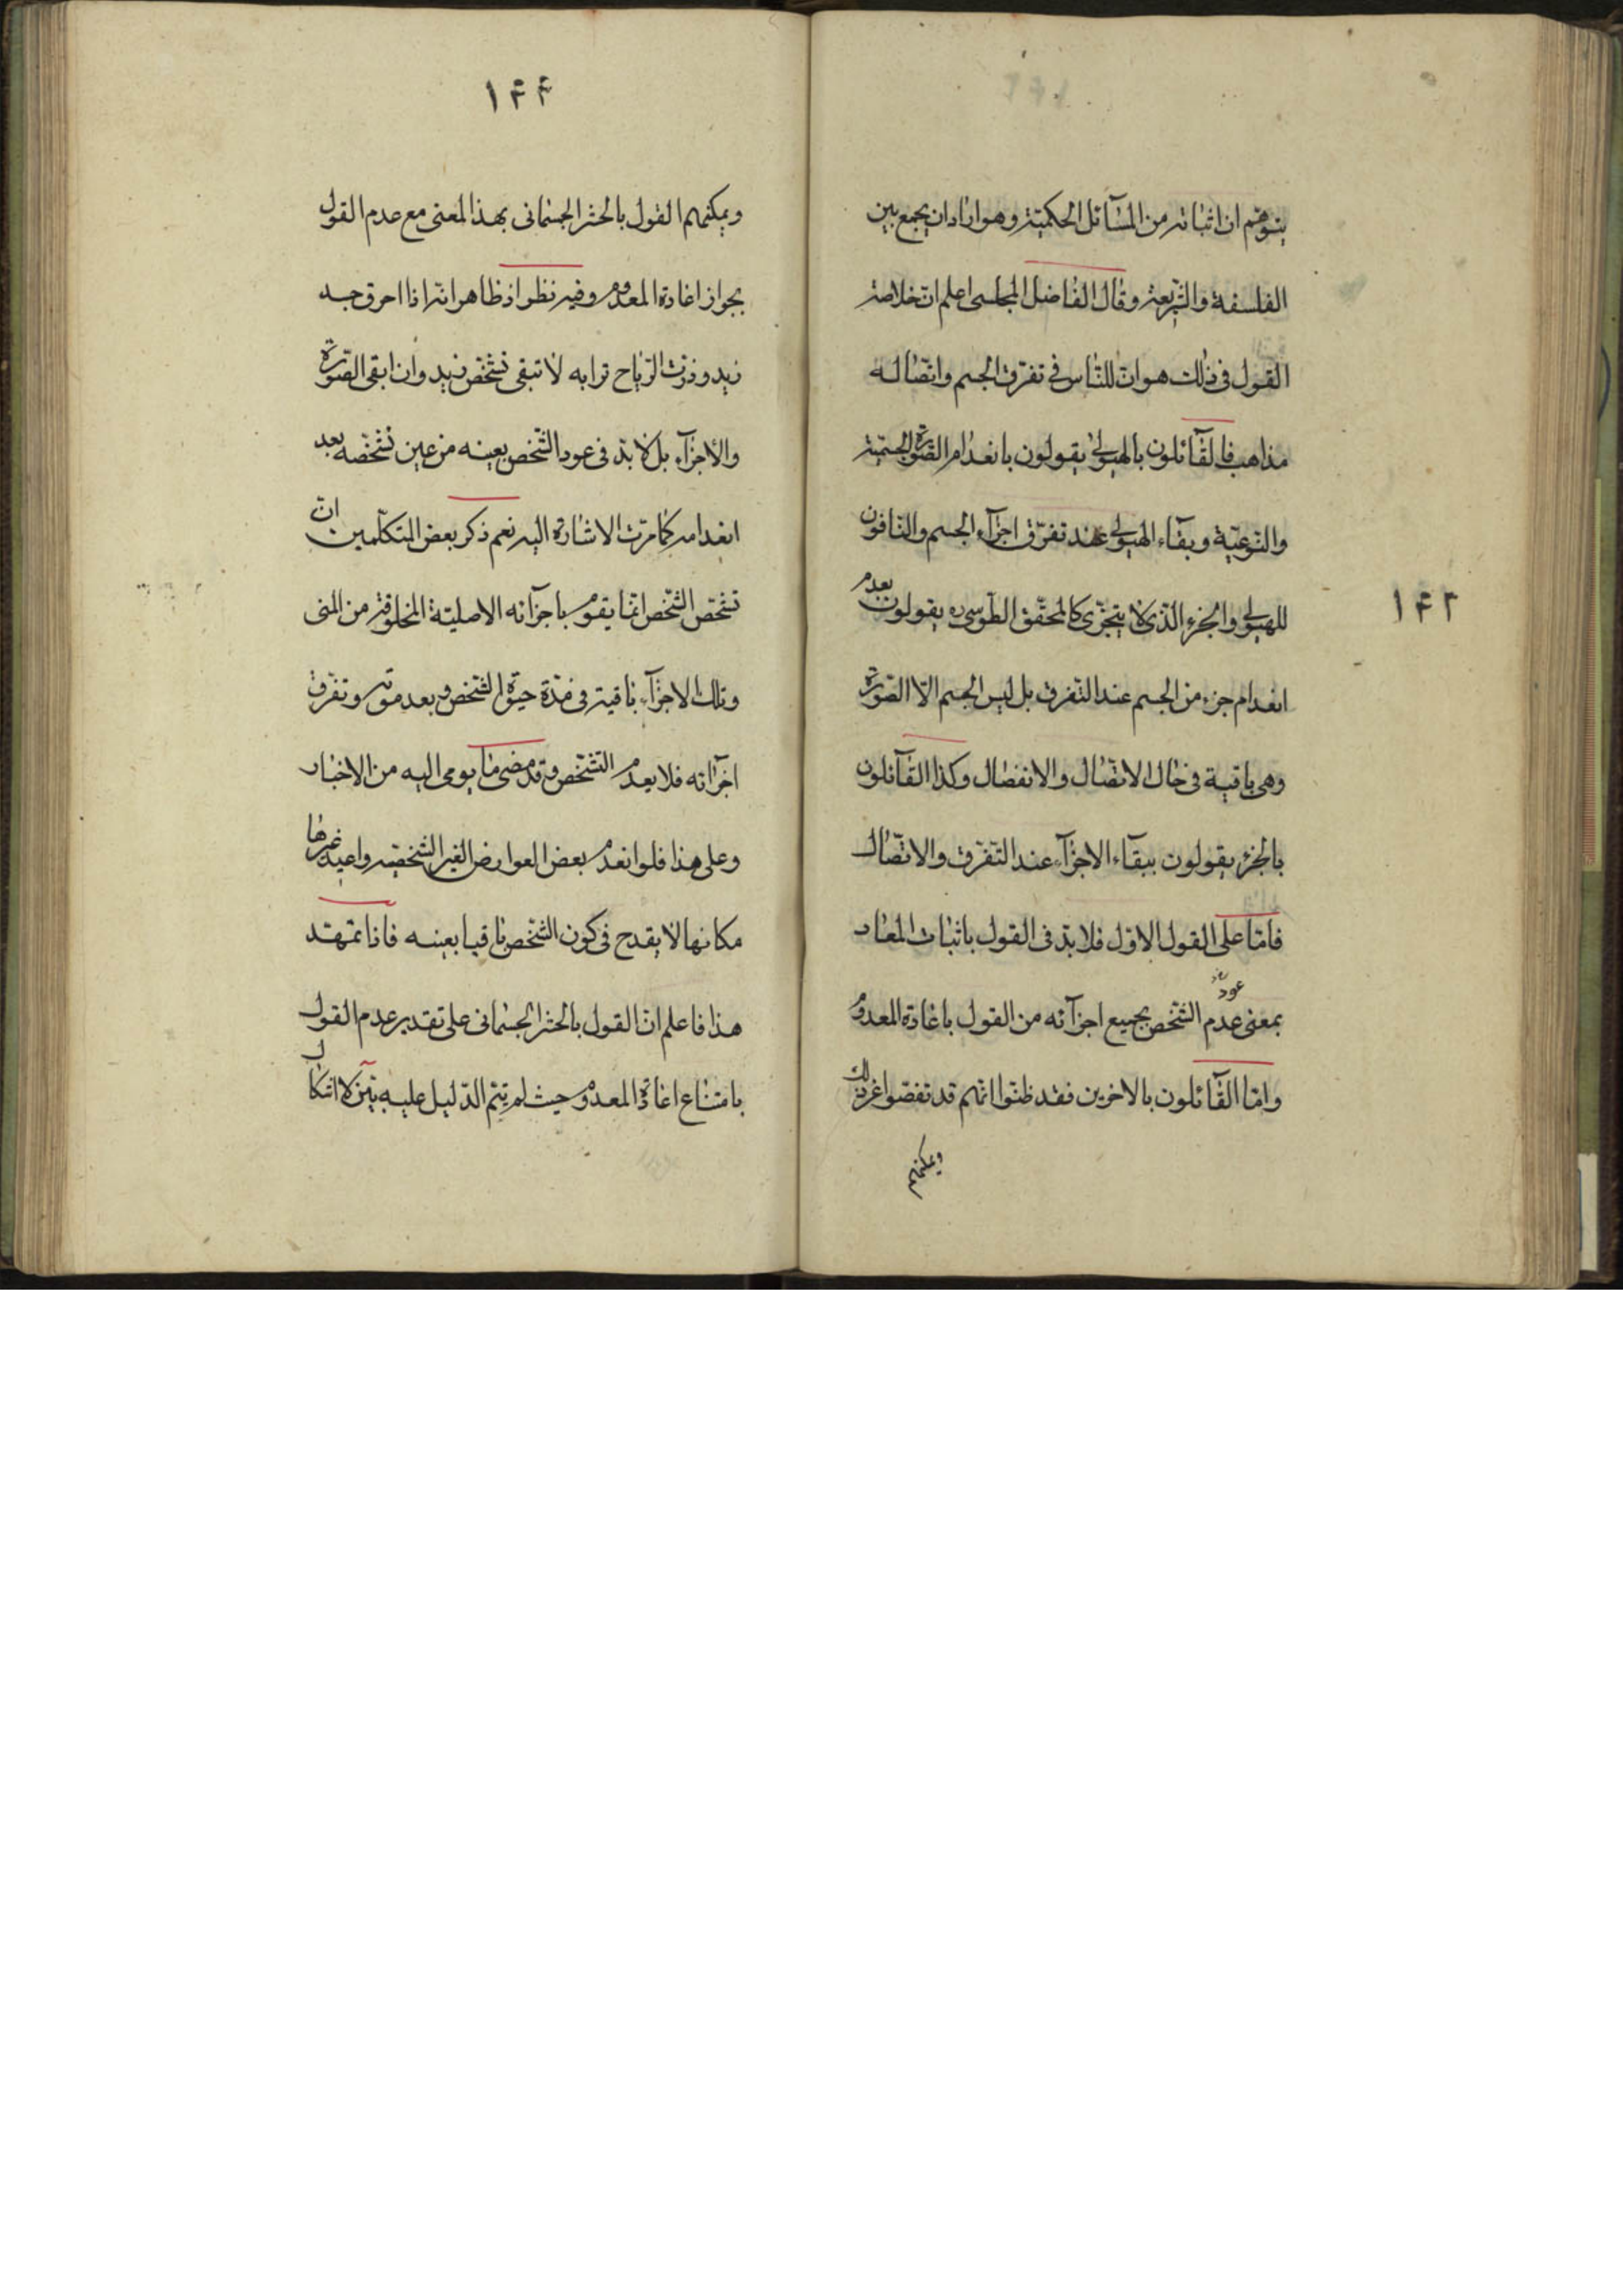 يتوهم ان اثباته من المسآئل الحكمية وهو اراد ان يجمع بين
الفلسفة والشريعة وقال الفاضل المجلسى اعلم ان خلاصة
القول فى ذلك هو ان للناس فى تفرق الجسم واتصاله
مذاهب فالقآئلون بالهيولى يقولون بانعدام الصورة الجسمية
والنوعية وبقآء الهيولى عند تفرق اجزآء الجسم والنافون
للهيولى والجزء الذى لا يتجزى كالمحقق الطوسى ره يقولون بعدم
۱۴۳
انعدام جزء من الجسم عند التفرق بل ليس الجسم الا الصورة
وهى باقية فى حال الاتصال والانفصال وكذا القآئلون
بالجزء يقولون ببقآء الاجزآء عند التفرق والاتصال
فاما على القول الاول فلا بد فى القول باثبات المعاد
بمعنى عدم عود الشخص بجميع اجزآئه من القول باعادة المعدوم
واما القآئلون بالاخرين فقد ظنوا انهم قد تفصوا عن ذلك
ويمكنهم
۱۴۴
ويمكنهم القول بالحشر الجسمانى بهذا المعنى مع عدم القول
بجواز اعادة المعدوم وفيه نظر اذ ظاهر انه اذا احرق جسد
زيد وذرت الرياح ترابه لا تبقى تشخص زيد وان ابقى الصورة
والاجزآء بل لا بد فى عود الشخص بعينه من عين تشخصه بعد
انعدامه كما مرت الاشارة اليه نعم ذكر بعض المتكلمين ان
تشخص الشخص انما يقوم باجزآئه الاصلية المخلوقة من المنى
وتلك الاجزآء باقية فى مدة حيوة الشخص وبعد موته وتفرق
اجزآئه فلا يعدم التشخص وقد مضى ما يومى اليه من الاخبار
وعلى هذا فلو انعدم بعض العوارض الغير الشخصية واعيد غيرها
مكانها لا يقدح فى كون الشخص باقيا بعينه فاذا تمهد
هذا فاعلم ان القول بالحشر الجسمانى على تقدير عدم القول
بامتناع اعادة المعدوم حيث لم يتم الدليل عليه بين لا اشكال